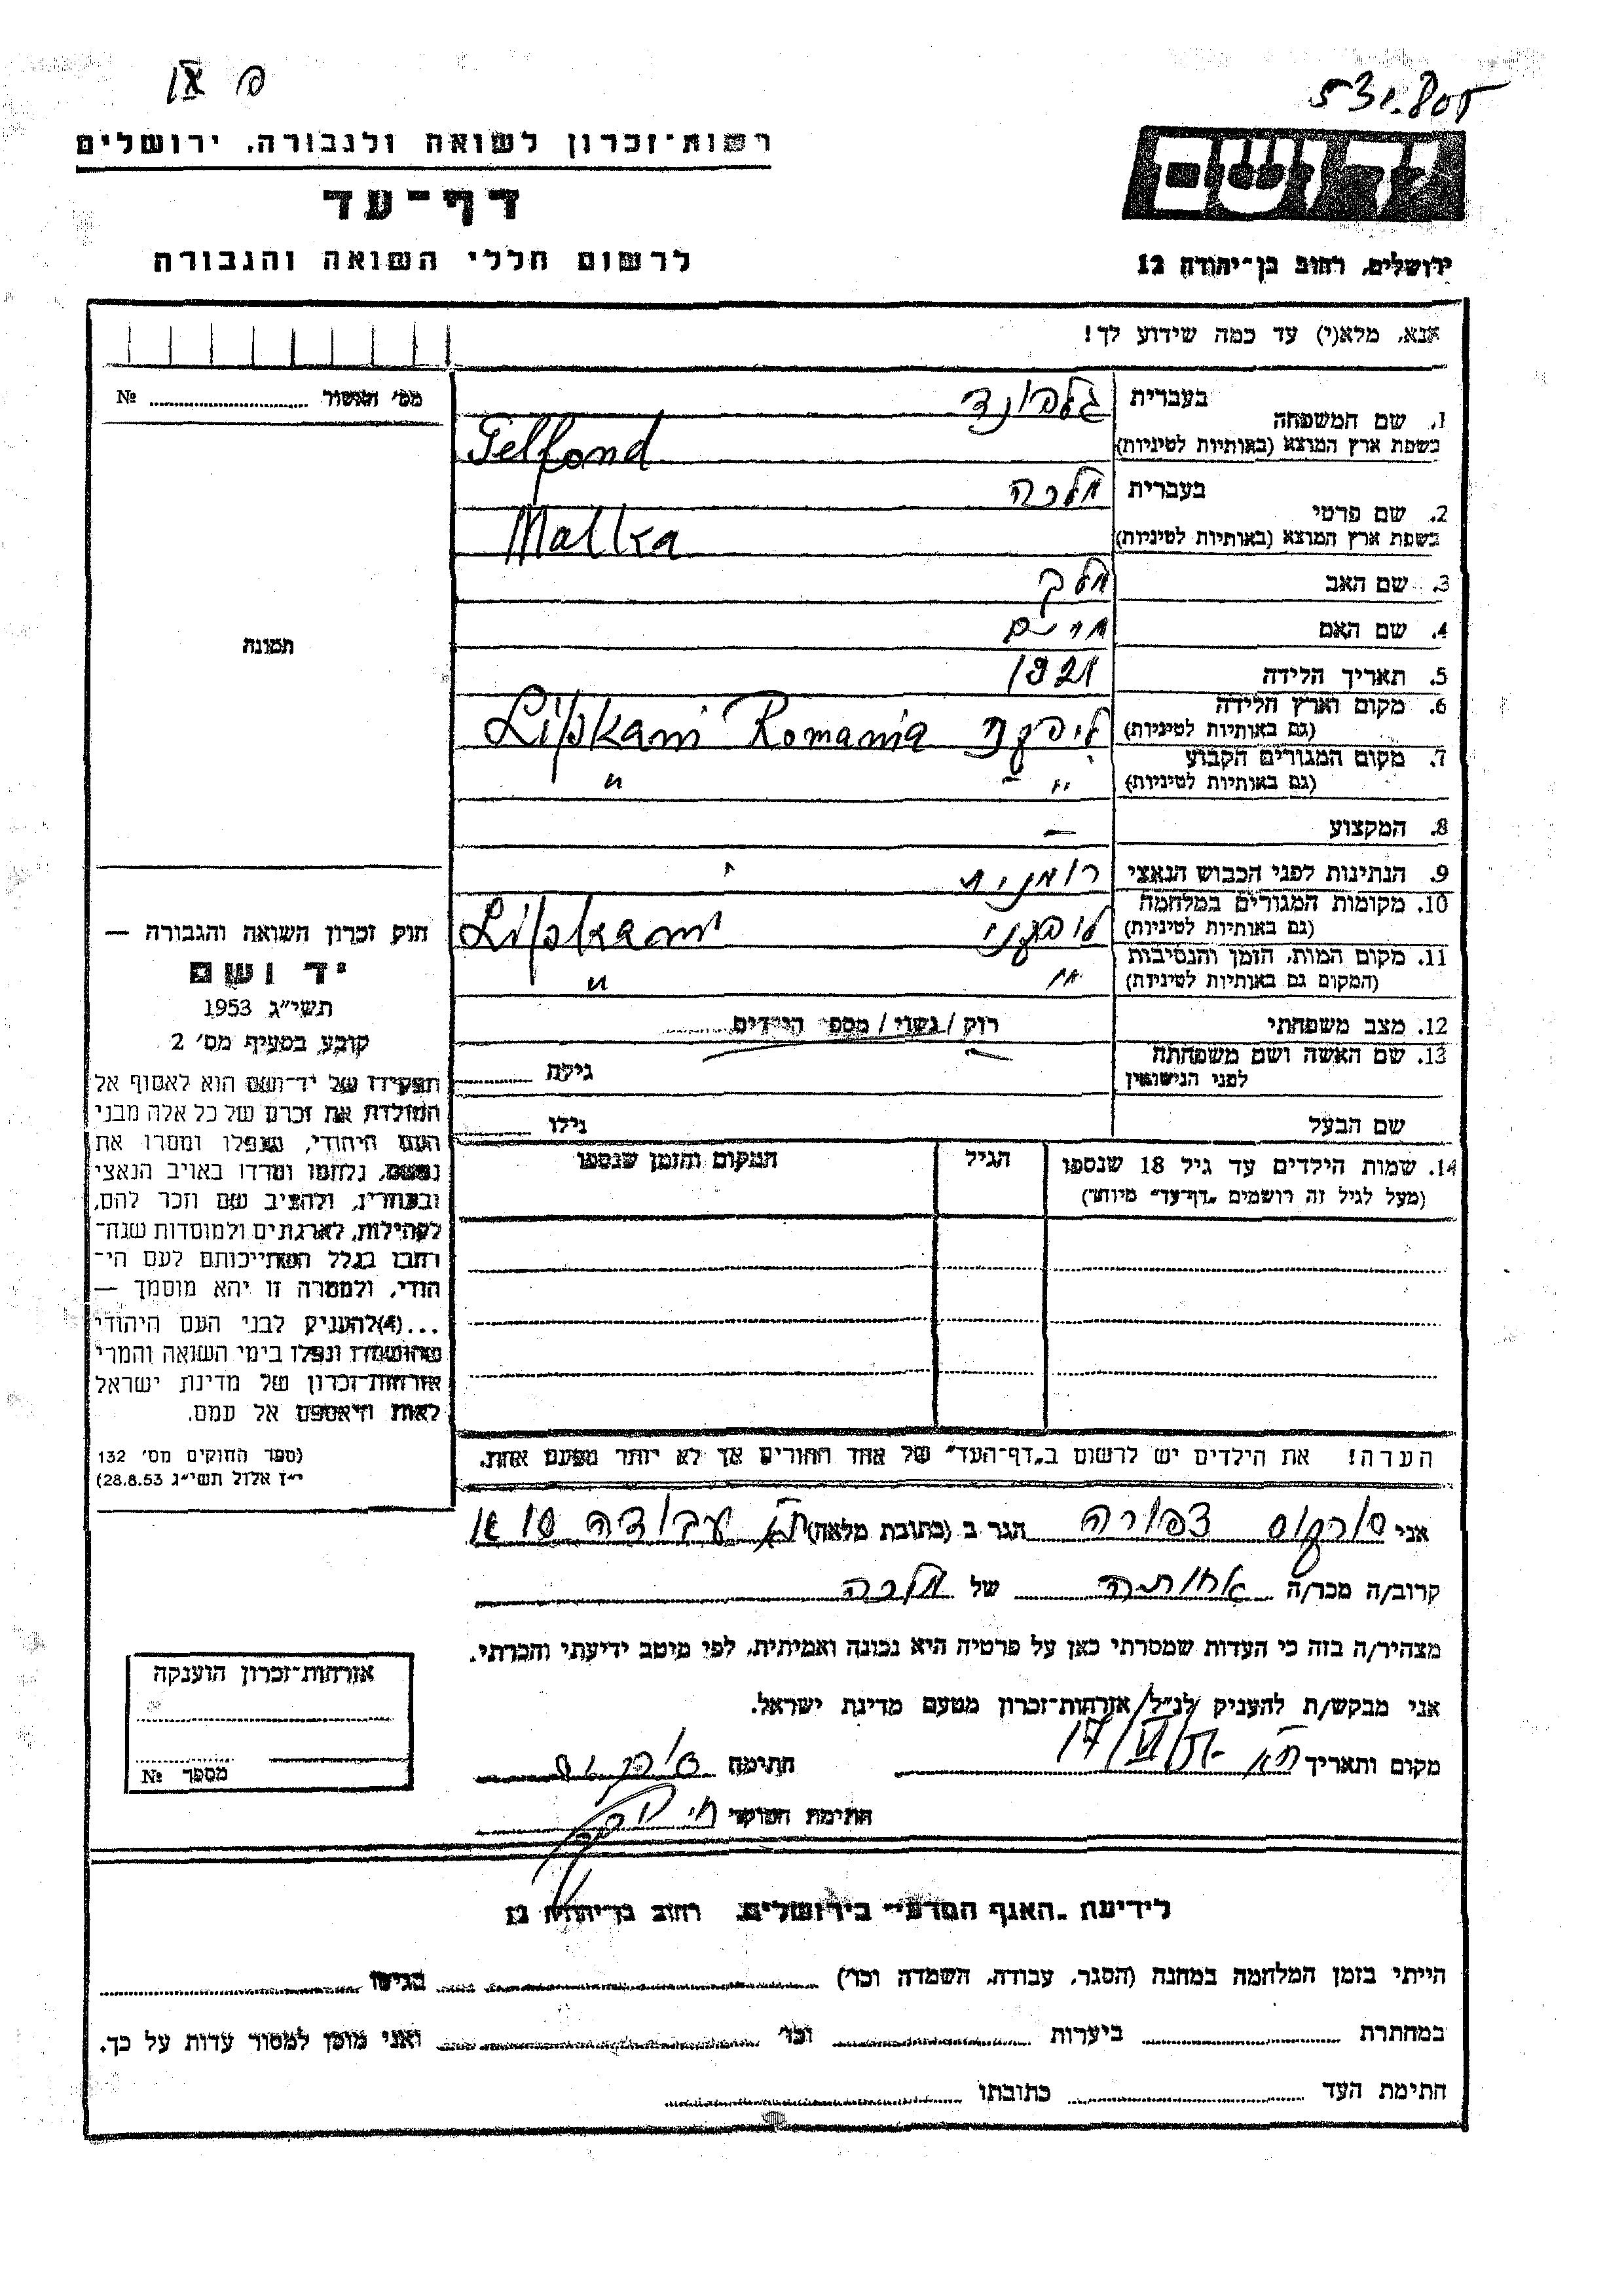 531.805
רשות־זכרון לשואה ולגבורה, ירושלים
דף־עד
לרשום חללי השואה והגבורה
יד ושם
ירושלים, רחוב בן־יהודה 12
אנא, מלא(י) עד כמה שידוע לך!
מס׳ № ........
1. שם המשפחה בעברית גלפונד
בשפת ארץ המוצא (באותיות לטיניות) Gelfond
2. שם פרטי בעברית מלכה
בשפת ארץ המוצא (באותיות לטיניות) Malka
3. שם האב מלך
4. שם האם מרים
5. תאריך הלידה 1921
6. מקום וארץ הלידה (גם באותיות לטיניות) ליפקני Lipkani Romania
7. מקום המגורים הקבוע (גם באותיות לטיניות) " "
8. המקצוע —
9. הנתינות לפני הכבוש הנאצי רומנית
10. מקומות המגורים במלחמה (גם באותיות לטיניות) ליפקני Lipkani
11. מקום המות, הזמן והנסיבות (המקום גם באותיות לטיניות) " "
12. מצב משפחתי רווק / נשוי / מספר הילדים
13. שם האשה ושם משפחתה לפני הנישואין גילה
שם הבעל גילו
14. שמות הילדים עד גיל 18 שנספו הגיל המקום והזמן שנספו
(מעל לגיל זה רושמים „דף־עד" מיוחד)
תמונה
חוק זכרון השואה והגבורה —
יד ושם
תשי״ג 1953
קובע בסעיף מס׳ 2
תפקידו של יד־ושם הוא לאסוף אל
המולדת את זכרם של כל אלה מבני
העם היהודי, שנפלו ומסרו את
נפשם, נלחמו ומרדו באויב הנאצי
ובעוזריו, ולהציב שם וזכר להם,
לקהילות, לארגונים ולמוסדות שנח־
רבו בגלל השתייכותם לעם הי־
הודי, ולמטרה זו יהא מוסמך —
...(4) להעניק לבני העם היהודי
שהושמדו ונפלו בימי השואה והמרי
אזרחות־זכרון של מדינת ישראל
לאות היאספם אל עמם.
(ספר החוקים מס׳ 132
י״ז אלול תשי״ג 28.8.53)
הערה! את הילדים יש לרשום ב„דף־העד" של אחד ההורים אך לא יותר מפעם אחת.
אני סורקיס צפורה הגר ב (כתובת מלאה) ת״א עבודה
קרוב/ה מכר/ה אחותה של מלכה
מצהיר/ה בזה כי העדות שמסרתי כאן על פרטיה היא נכונה ואמיתית, לפי מיטב ידיעתי והכרתי.
אני מבקש/ת להעניק לנ״ל אזרחות־זכרון מטעם מדינת ישראל.
מקום ותאריך ת״א 17/VI/ חתימה
חתימת הפוקד
אזרחות־זכרון הוענקה
מספר №
לידיעת „האגף המדעי" בירושלים, רחוב בן־יהודה 12
הייתי בזמן המלחמה במחנה (הסגר, עבודה, השמדה וכו׳) בגיטו
במחתרת ביערות וכו׳ ואני מוכן למסור עדות על כך.
חתימת העד כתובתו